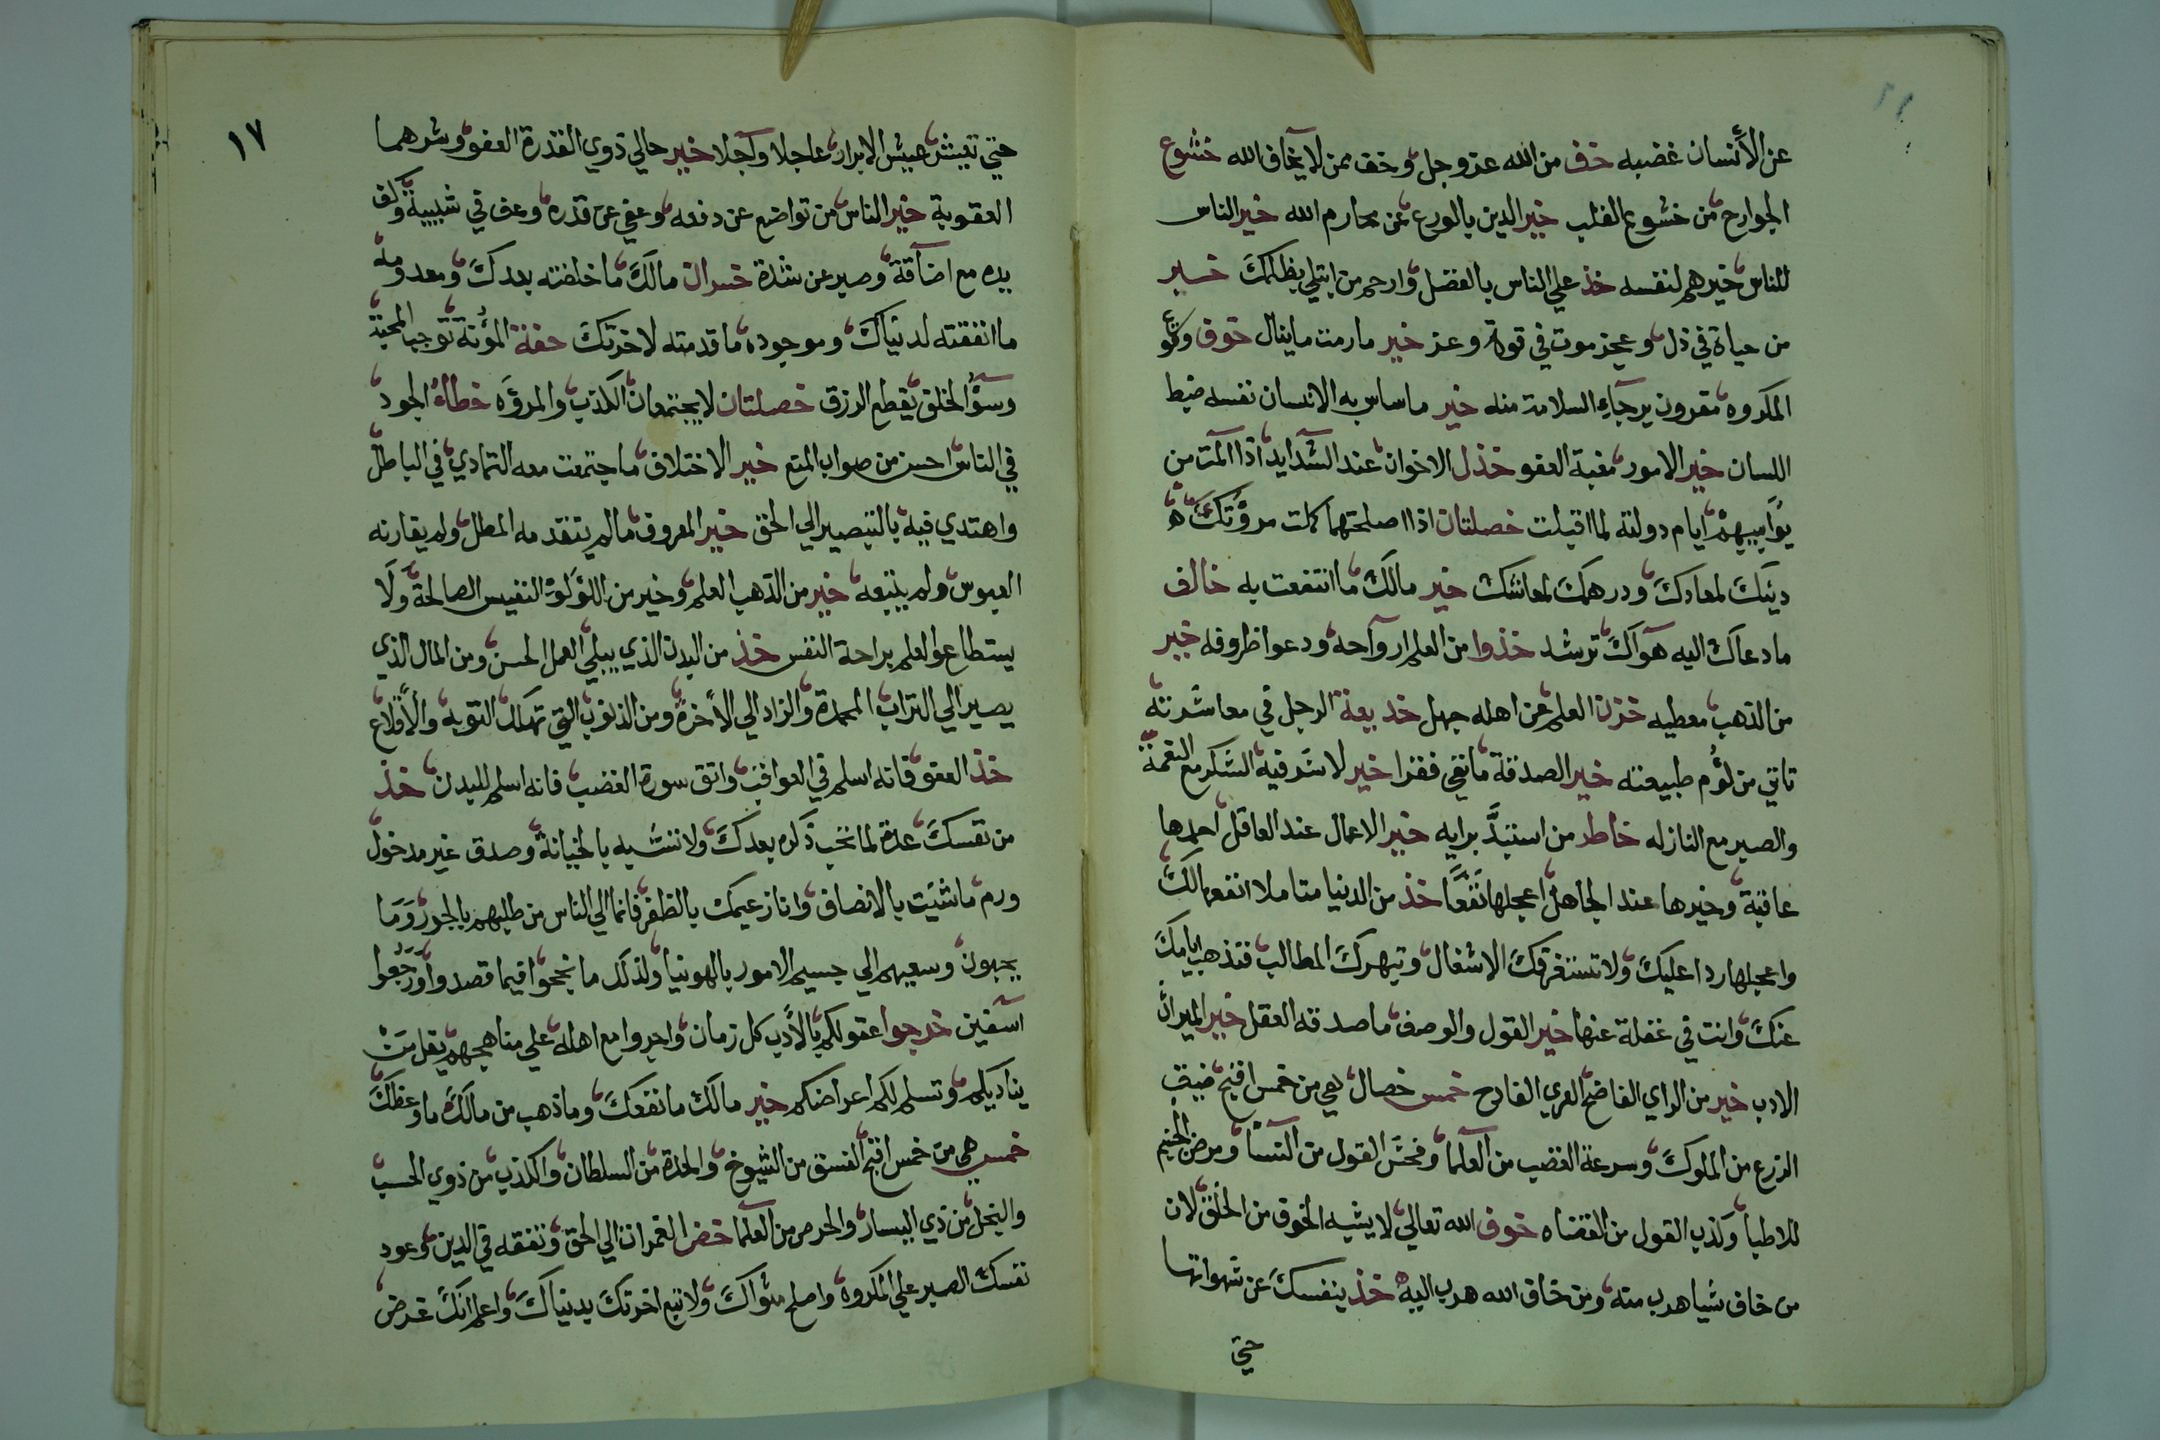 عن الأنسان غضبه خف من الله عز وجل وخف ممن لا يخاف الله خشوع
الجوارح من خشوع القلب خير الدين بالورع عن محارم الله خير الناس
للناس خيرهم لنفسه خذ علي الناس بالفضل وارحم من ابتلي بظلمك خير
من حياة في ذل وعجز موت في قوة وعز خير مارمت ماينال خوف وقوع
المكروه مقرون برجاء السلامة منه خير ماساس به الانسان نفسه ضبط
اللسان خير الامور مغبة العفو خذل الاخوان عند الشدايد اذا المت من
يواسيهم ايام دولته لما اقبلت خصلتان اذا اصلحتهما كملت مروتك
دينك لمعادك ودرهمك لمعاشك خير مالك ما انتفعت به خالف
مادعاك اليه هواك ترشد خذوا من العلم ارواحه ودعوا ظروفه خير
من الذهب معطيه خزن العلم عن اهله جهل خديعة الرجل في معاشرته
تاتي من لؤم طبيعته خير الصدقة مانفي فقرا خير لاشر فيه الشكر مع النعمة
والصبر مع النازله خاطر من استبد برايه خير الاعمال عند العاقل احمدها
عاقبة وخيرها عند الجاهل اعجلها نفعا خذ من الدنيا متاملا انفعها لك
واعجلها ردا عليك ولا تستغرقك الاشغال وتبهرك المطالب فتذهب ايامك
عنك وانت في غفلة عنها خير القول والوصف ماصدقه العقل خير الميراث
الادب خير من الراي الفاضح العري الفادح خمس خصال هي من خمس اقبح ضيق
الذرع من الملوك وسرعة الغضب من العلما وفحش القول من النسا ومرض الجسم
للاطبا وكذب القول من القضاه خوف الله تعالي لايشبه الخوف من الخلق لان
من خاف شيا هرب منه ومن خاف الله هرب اليه خذ بنفسك عن شهواتها
حتي
١٧
حتي تعيش عيش الابرار عاجلا وآجلا خير حالي ذوي القدرة العفو وشرهما
العقوبة خير الناس من تواضع عن رفعه وعفي عن قدره وعف في شبيبة وكف
يده مع اضاقة وصبر عن شدة خسران مالك ماخلفته بعدك ومعدومه
ما انفقته لدنياك وموجوده ماقدمته لاخرتك خفة المؤنة توجب المحبة
وسؤ الخلق يقطع الرزق خصلتان لايجتمعان الكذب والمروه خطاء الجود
في الناس احسن من صواب المنع خير الاختلاف ما اجتمعت معه التمادي في الباطل
واهتدي فيه بالتبصير الي الحق خير المعروف مالم يتقدمه المطل ولم يقارنه
العبوس ولم يتبعه خير من الذهب العلم وخير من اللؤلؤ النفيس الصالحة ولا
يستطاع العلم براحة النفس خذ من البدن الذي يبلي العمل الحسن ومن المال الذي
يصير الي التراب المحمدة والزاد الي الأخرة ومن الذنوب التي تهلك التوبه والأقلاع
خذ العفو فانه اسلم في العواقب واتق سورة الغضب فانه اسلم للبدن خذ
من نفسك عدة لما تحب ذكره بعدك ولا تنشبه بالخيانة وصدق غير مدخول
ورم ماشيت بالانصاف وانا زعيمك بالظفر فانما الي الناس من طلبهم بالجور وما
يحبون وسعيهم الي جسيم الامور بالهوينا ولذلك مانجحوا فيما قصدوا ورجعوا
اسفين خرجوا عقولكم بالأدب كل زمان واجروا مع اهله علي مناهجهم يقل من
يناديكم وتسلم لكم اعراضكم خير مالك مانفعك وماذهب من مالك ماوعظك
خمس هي من خمس اقبح الفسق من الشيوخ والحدة من السلطان والكذب من ذوي الحسب
والبخل من ذي اليسار والحرص من العلما خض الغمرات الي الحق وتفقه في الدين وعود
نفسك الصبر علي المكروه واصلح مثواك ولا تبع اخرتك بدنياك واعلم انك غرض